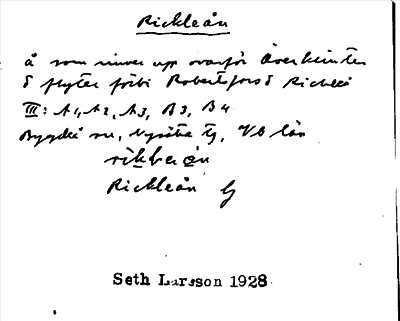 Rickleån
å som rinner upp ovanför Överklinten
& flyter förbi Robertsfors & Rickleå
III: A1, A2, A3, B3, B4
Bygdeå sn, Nysätra tg, Vb län
Rickleån
Seth Larsson 1928